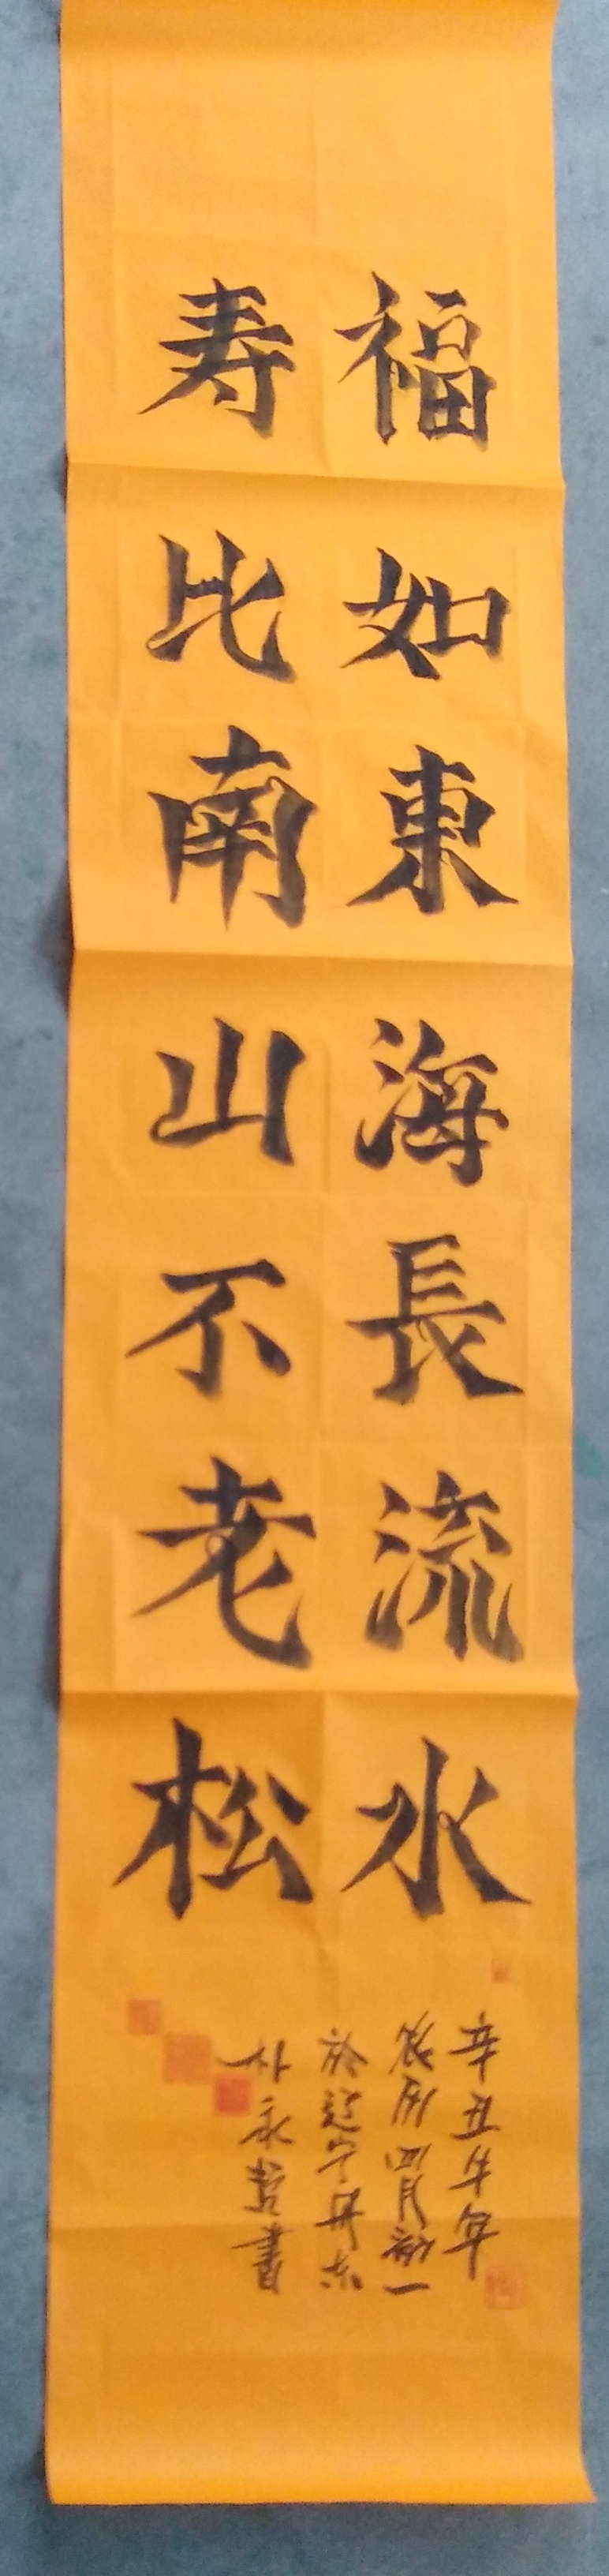 福如東海長流水
寿比南山不老松
辛丑牛年
农历四月初一
於辽宁丹东
朴永哲書